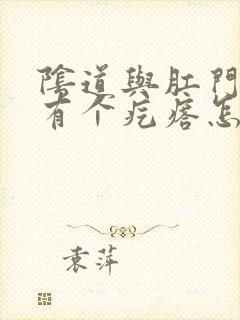 陰道與肛門
有个疙瘩怎
袁萍